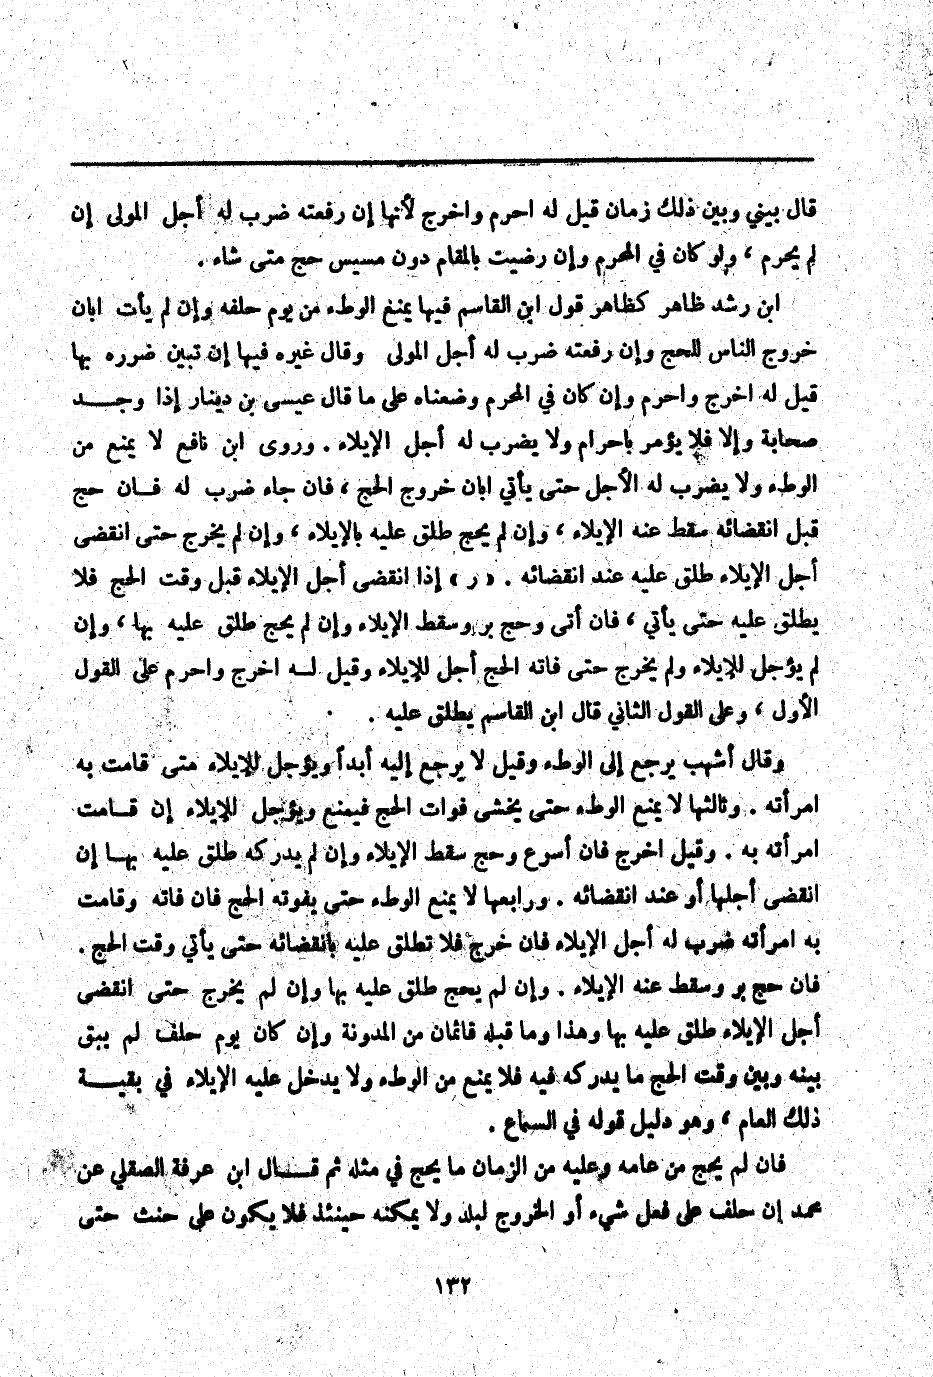 قال بيني وبين ذلك زمان قيل له احرم واخرج لأنها إن رفعته ضرب له أجل المولى إن
لم يحرم ، ولو كان في المحرم وإن رضيت بالمقام دون مسيس حج متى شاء .
ابن رشد ظاهر كظاهر قول ابن القاسم فيها يمنع الوطء من يوم حلفه وإن لم يأت ابان
خروج الناس للحج وإن رفعته ضرب له أجل المولى وقال غيره فيها إن تبين ضرره بها
قيل له اخرج واحرم وإن كان في المحرم وضعناه على ما قال عيسى بن دينار إذا وجد
صحابة وإلا فلا يؤمر باحرام ولا يضرب له أجل الإيلاء . وروى ابن نافع لا يمنع من
الوطء ولا يضرب له الأجل حتى يأتي ابان خروج الحج ، فان جاء ضرب له فان حج
قبل انقضائه سقط عنه الإيلاء ، وإن لم يحج طلق عليه بالإيلاء ، وإن لم يخرج حتى انقضى
أجل الإيلاء طلق عليه عند انقضائه . « ر » إذا انقضى أجل الإيلاء قبل وقت الحج فلا
يطلق عليه حتى يأتي ، فان أتى وحج بر وسقط الإيلاء وإن لم يحج طلق عليه بها ، وإن
لم يؤجل للإيلاء ولم يخرج حتى فاته الحج أجل للإيلاء وقيل له اخرج واحرم على القول
الأول ، وعلى القول الثاني قال ابن القاسم يطلق عليه .
وقال أشهب يرجع إلى الوطء وقيل لا يرجع إليه أبداً ويؤجل للإيلاء متى قامت به
امرأته . وثالثها لا يمنع الوطء حتى يخشى فوات الحج فيمنع ويؤجل للإيلاء إن قامت
امرأته به . وقيل اخرج فان أسرع وحج سقط الإيلاء وإن لم يدركه طلق عليه بها إن
انقضى أجلها أو عند انقضائه . ورابعها لا يمنع الوطء حتى يفوته الحج فان فاته وقامت
به امرأته ضرب له أجل الإيلاء فان خرج فلا تطلق عليه بانقضائه حتى يأتي وقت الحج .
فان حج بر وسقط عنه الإيلاء . وإن لم يحج طلق عليه بها وإن لم يخرج حتى انقضى
أجل الإيلاء طلق عليه بها وهذا وما قبله قائمان من المدونة وإن كان يوم حلف لم يبق
بينه وبين وقت الحج ما يدركه فيه فلا يمنع من الوطء ولا يدخل عليه الإيلاء في بقية
ذلك العام ، وهو دليل قوله في السماع .
فان لم يحج من عامه وعليه من الزمان ما يحج في مثله ثم قال ابن عرفة الصقلي عن
محمد إن حلف على فعل شيء أو الخروج لبلد ولا يمكنه حينئذ فلا يكون على حنث حتى
١٣٢